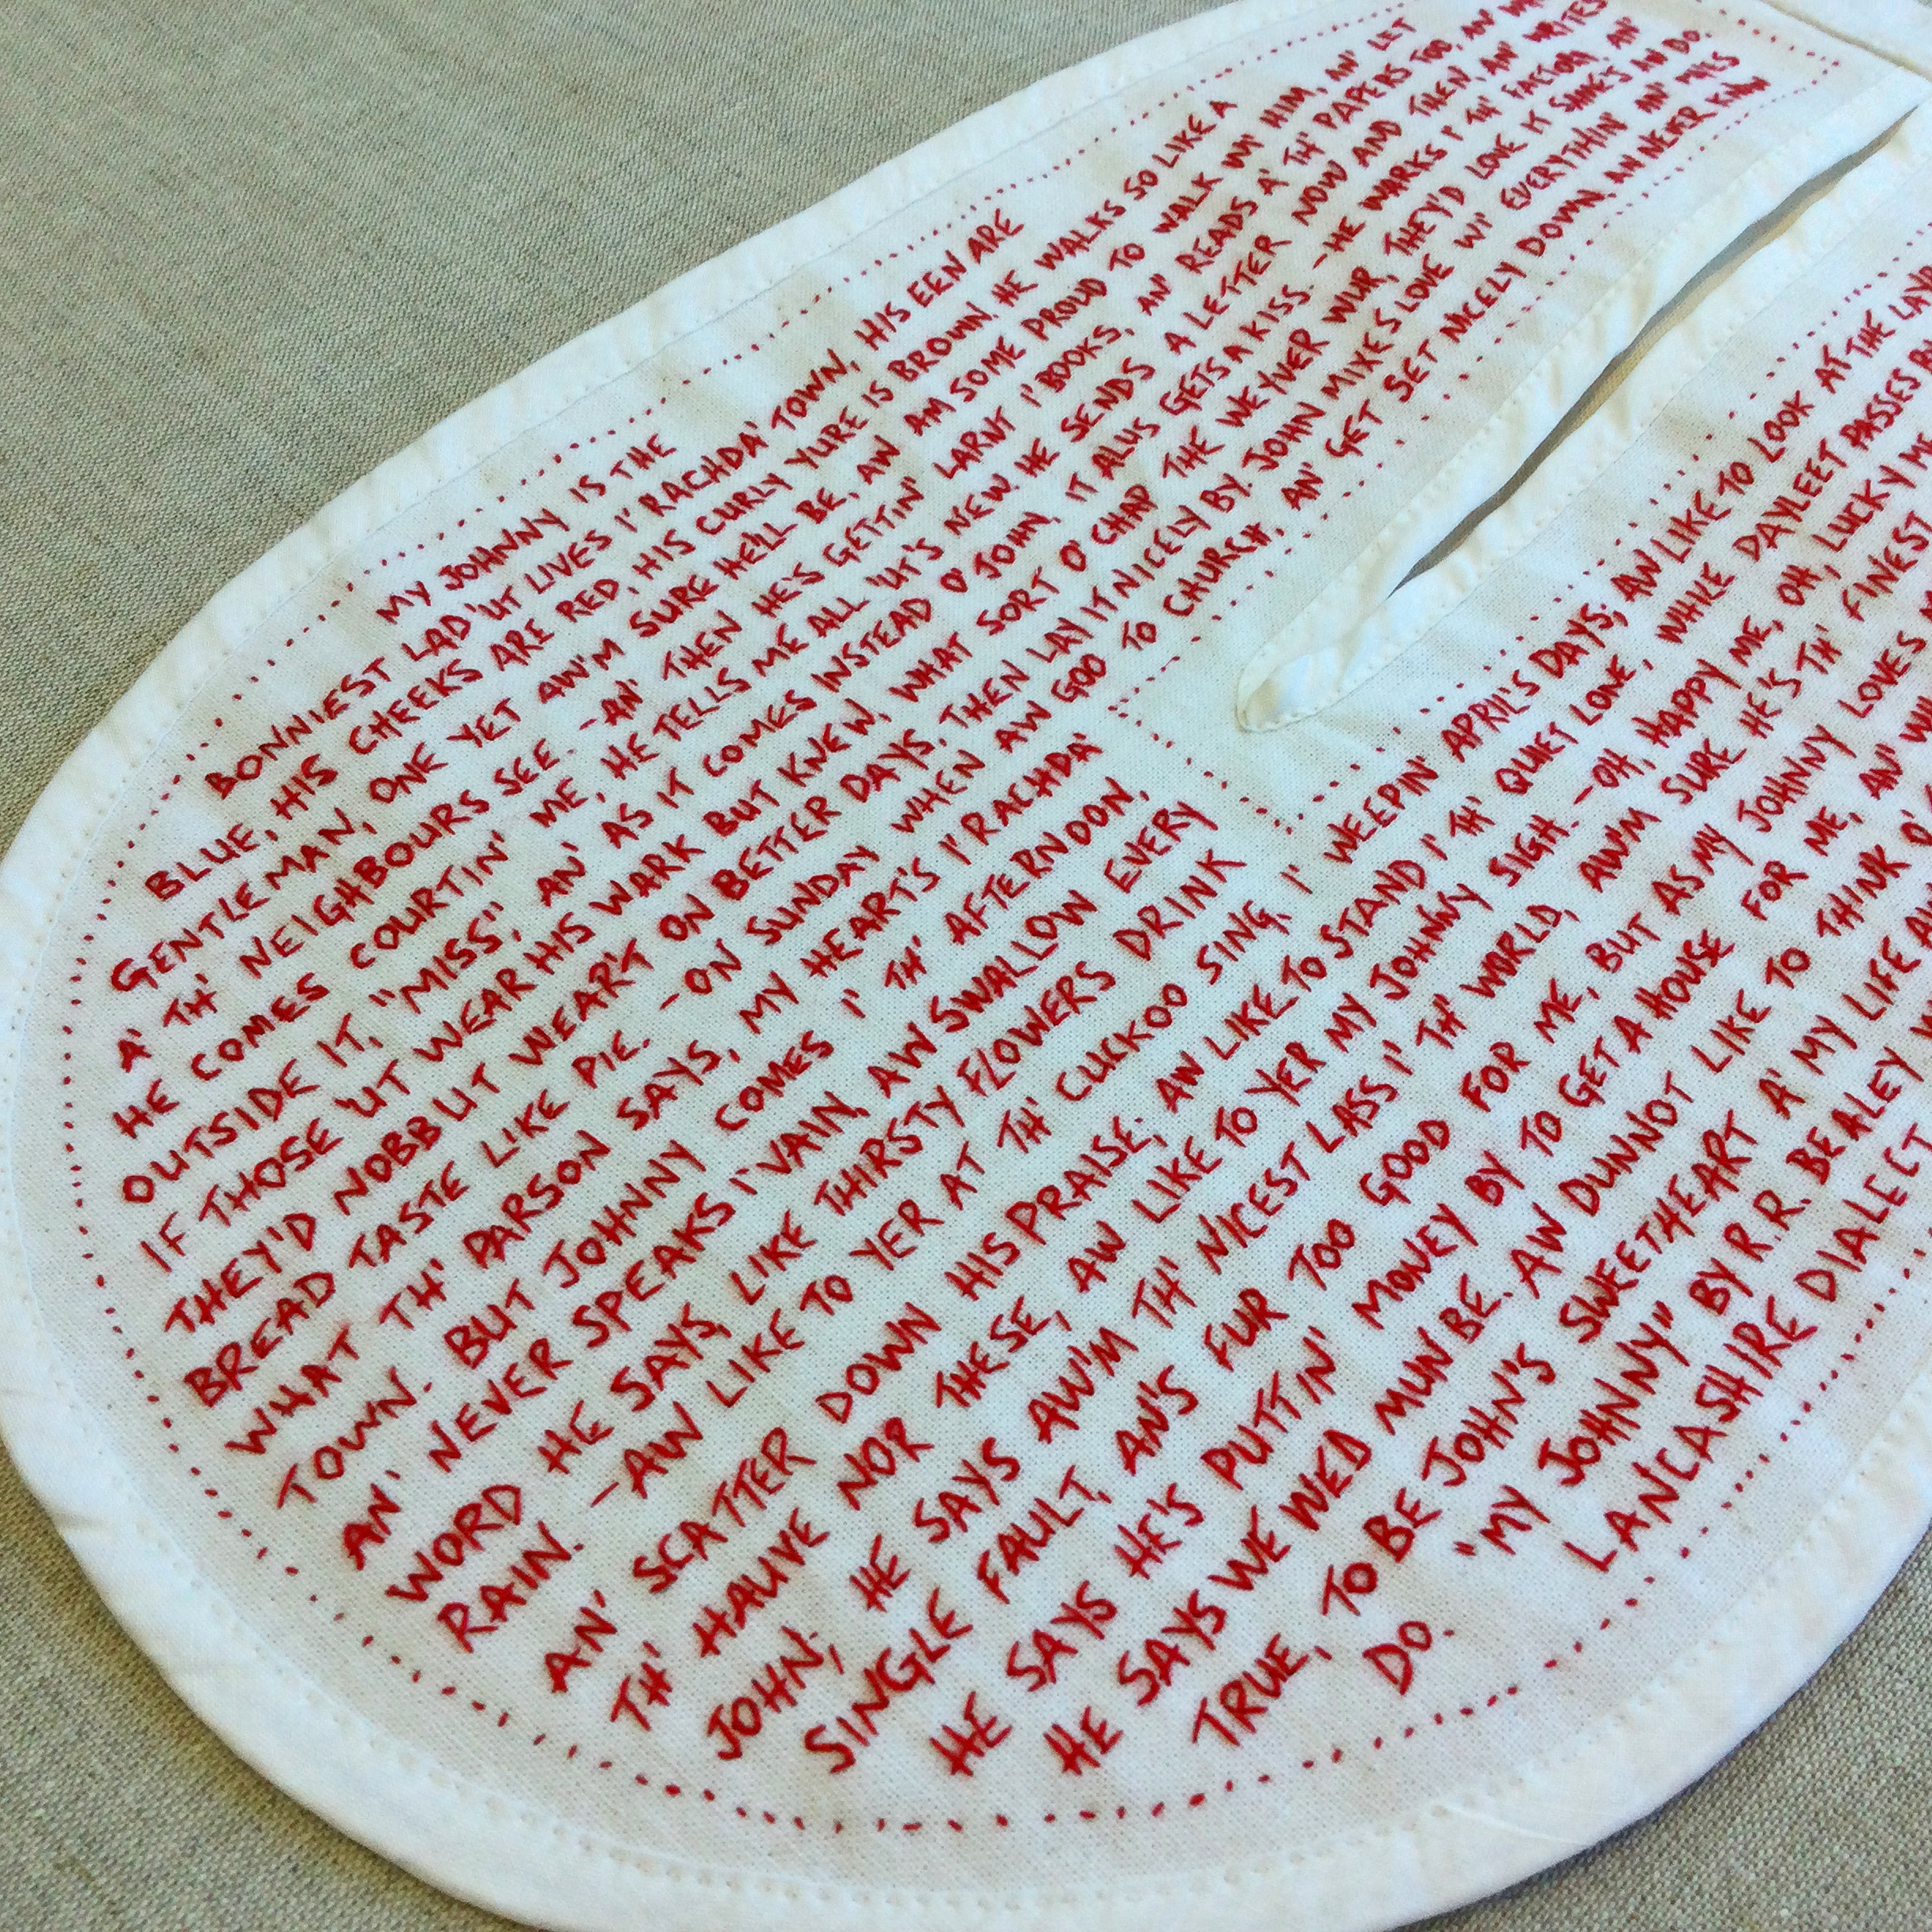 MY JOHNNY IS THE
BONNIEST LAD 'UT LIVES I' RACHDA' TOWN, HIS EEN ARE
BLUE, HIS CHEEKS ARE RED, HIS CURLY YURE IS BROWN, HE WALKS SO LIKE A
GENTLEMAN, ONE YET AW'M SURE HE'LL BE, AW AM SOME PROUD TO WALK WI' HIM, AN' LET
A' TH' NEIGHBOURS SEE. -AN' THEN HE'S GETTIN' LARNT I' BOOKS, AN' READS A' TH' PAPERS TOO, AN'
HE COMES COURTIN' ME, HE TELLS ME ALL 'UT'S NEW. HE SENDS A LETTER NOW AND THEN, AN' WRITES
OUTSIDE IT, "MISS", AN' AS IT COMES INSTEAD O' JOHN, IT ALUS GETS A KISS. -HE WARKS I' TH' FACTORY, AN'
IF THOSE 'UT WEAR HIS WARK BUT KNEW, WHAT SORT O' CHAP THE WEYVER WUR, THEY'D LOVE IT SAME'S AW DO
THEY'D NOBBUT WEAR'T ON BETTER DAYS, THEN LAY IT NICELY BY. JOHN MIXES LOVE WI' EVERYTHIN' AN' MAKES
BREAD TASTE LIKE PIE. -ON SUNDAY WHEN AW GOO TO CHURCH, AN' GET SET NICELY DOWN AW NEVER KNOW
WHAT TH' PARSON SAYS, MY HEART'S I' RACHDA'
TOWN. BUT JOHNNY COMES I' TH' AFTERNOON,
AN' NEVER SPEAKS I' VAIN, AW SWALLOW EVERY
WORD HE SAYS, LIKE THIRSTY FLOWERS DRINK
RAIN. -AW LIKE TO YER AT TH' CUCKOO SING, I' WEEPIN' APRIL'S DAYS; AW LIKE TO LOOK AT THE
AN' SCATTER DOWN HIS PRAISE; AW LIKE TO STAND I' TH' QUIET LONE, WHILE DAYLEET PASSES
TH' HAUVE NOR THESE, AW LIKE TO YER MY JOHNNY SIGH. -OH, HAPPY ME, OH, LUCKY
JOHN; HE SAYS AW'M TH' NICEST LASS I' TH' WORLD, AW'M SURE HE'S TH' FINEST
SINGLE FAULT, AN'S FUR TOO GOOD FOR ME, BUT AS MY JOHNNY LOVES
HE SAYS HE'S PUTTIN' MONEY BY TO GET A HOUSE FOR ME, AN'
HE SAYS WE WED MUN BE. AW DUNNOT LIKE TO THINK
TRUE, TO BE JOHN'S SWEETHEART A' MY LIFE
DO. "MY JOHNNY" BY R.R. BEALEY
LANCASHIRE DIALECT